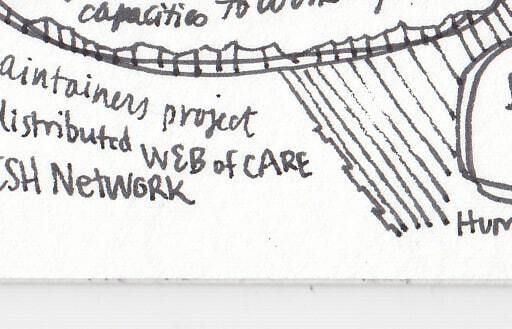 capacities to
aintainers project
distributed WEB of CARE
ESH NETWORK
Hum